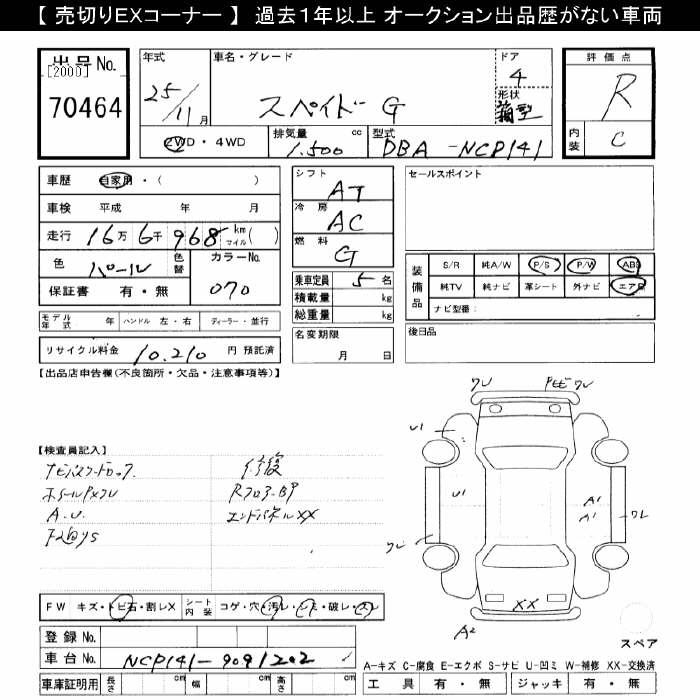 【 売切りEXコーナー 】 過去1年以上 オークション出品歴がない車両
出品No.
[2000]
70464
年式
25/11月
車名・グレード
スペイド G
ドア
4
形状
箱型
2WD・4WD
排気量
1.500 cc
型式
DBA-NCP141
評価点
R
内装
C
車歴 自家用・( )
車検 平成 年 月
走行 16万6千968 km マイル( )
色 パール 色替
カラーNo.
070
保証書 有・無
モデル年式 年 ハンドル 左・右 ディーラー・並行
リサイクル料金 10.210 円 預託済
シフト
AT
冷房
AC
燃料
G
乗車定員 5 名
積載量 kg
総重量 kg
名変期限
月 日
セールスポイント
装備品
S/R 純A/W P/S P/W ABS
純TV 純ナビ 革シート 外ナビ エアB
ナビ型番:
後日品
【出品店申告欄(不良箇所・欠品・注意事項等)】
【検査員記入】
A.U.
修復
エンドパネルXX
FW キズ・トビ石・割レX
シート内装 コゲ・穴・汚レ・シミ・破レ・スレ
登録No.
車台No. NCP141-9091202
車庫証明用 長さ cm 幅 cm 高さ cm
ワレ
ワレ
U1
U1
A1
A1
ワレ
ワレ
XX
A2
スペア
A-キズ C-腐食 E-エクボ S-サビ U-凹ミ W-補修 XX-交換済
工具 有・無 ジャッキ 有・無